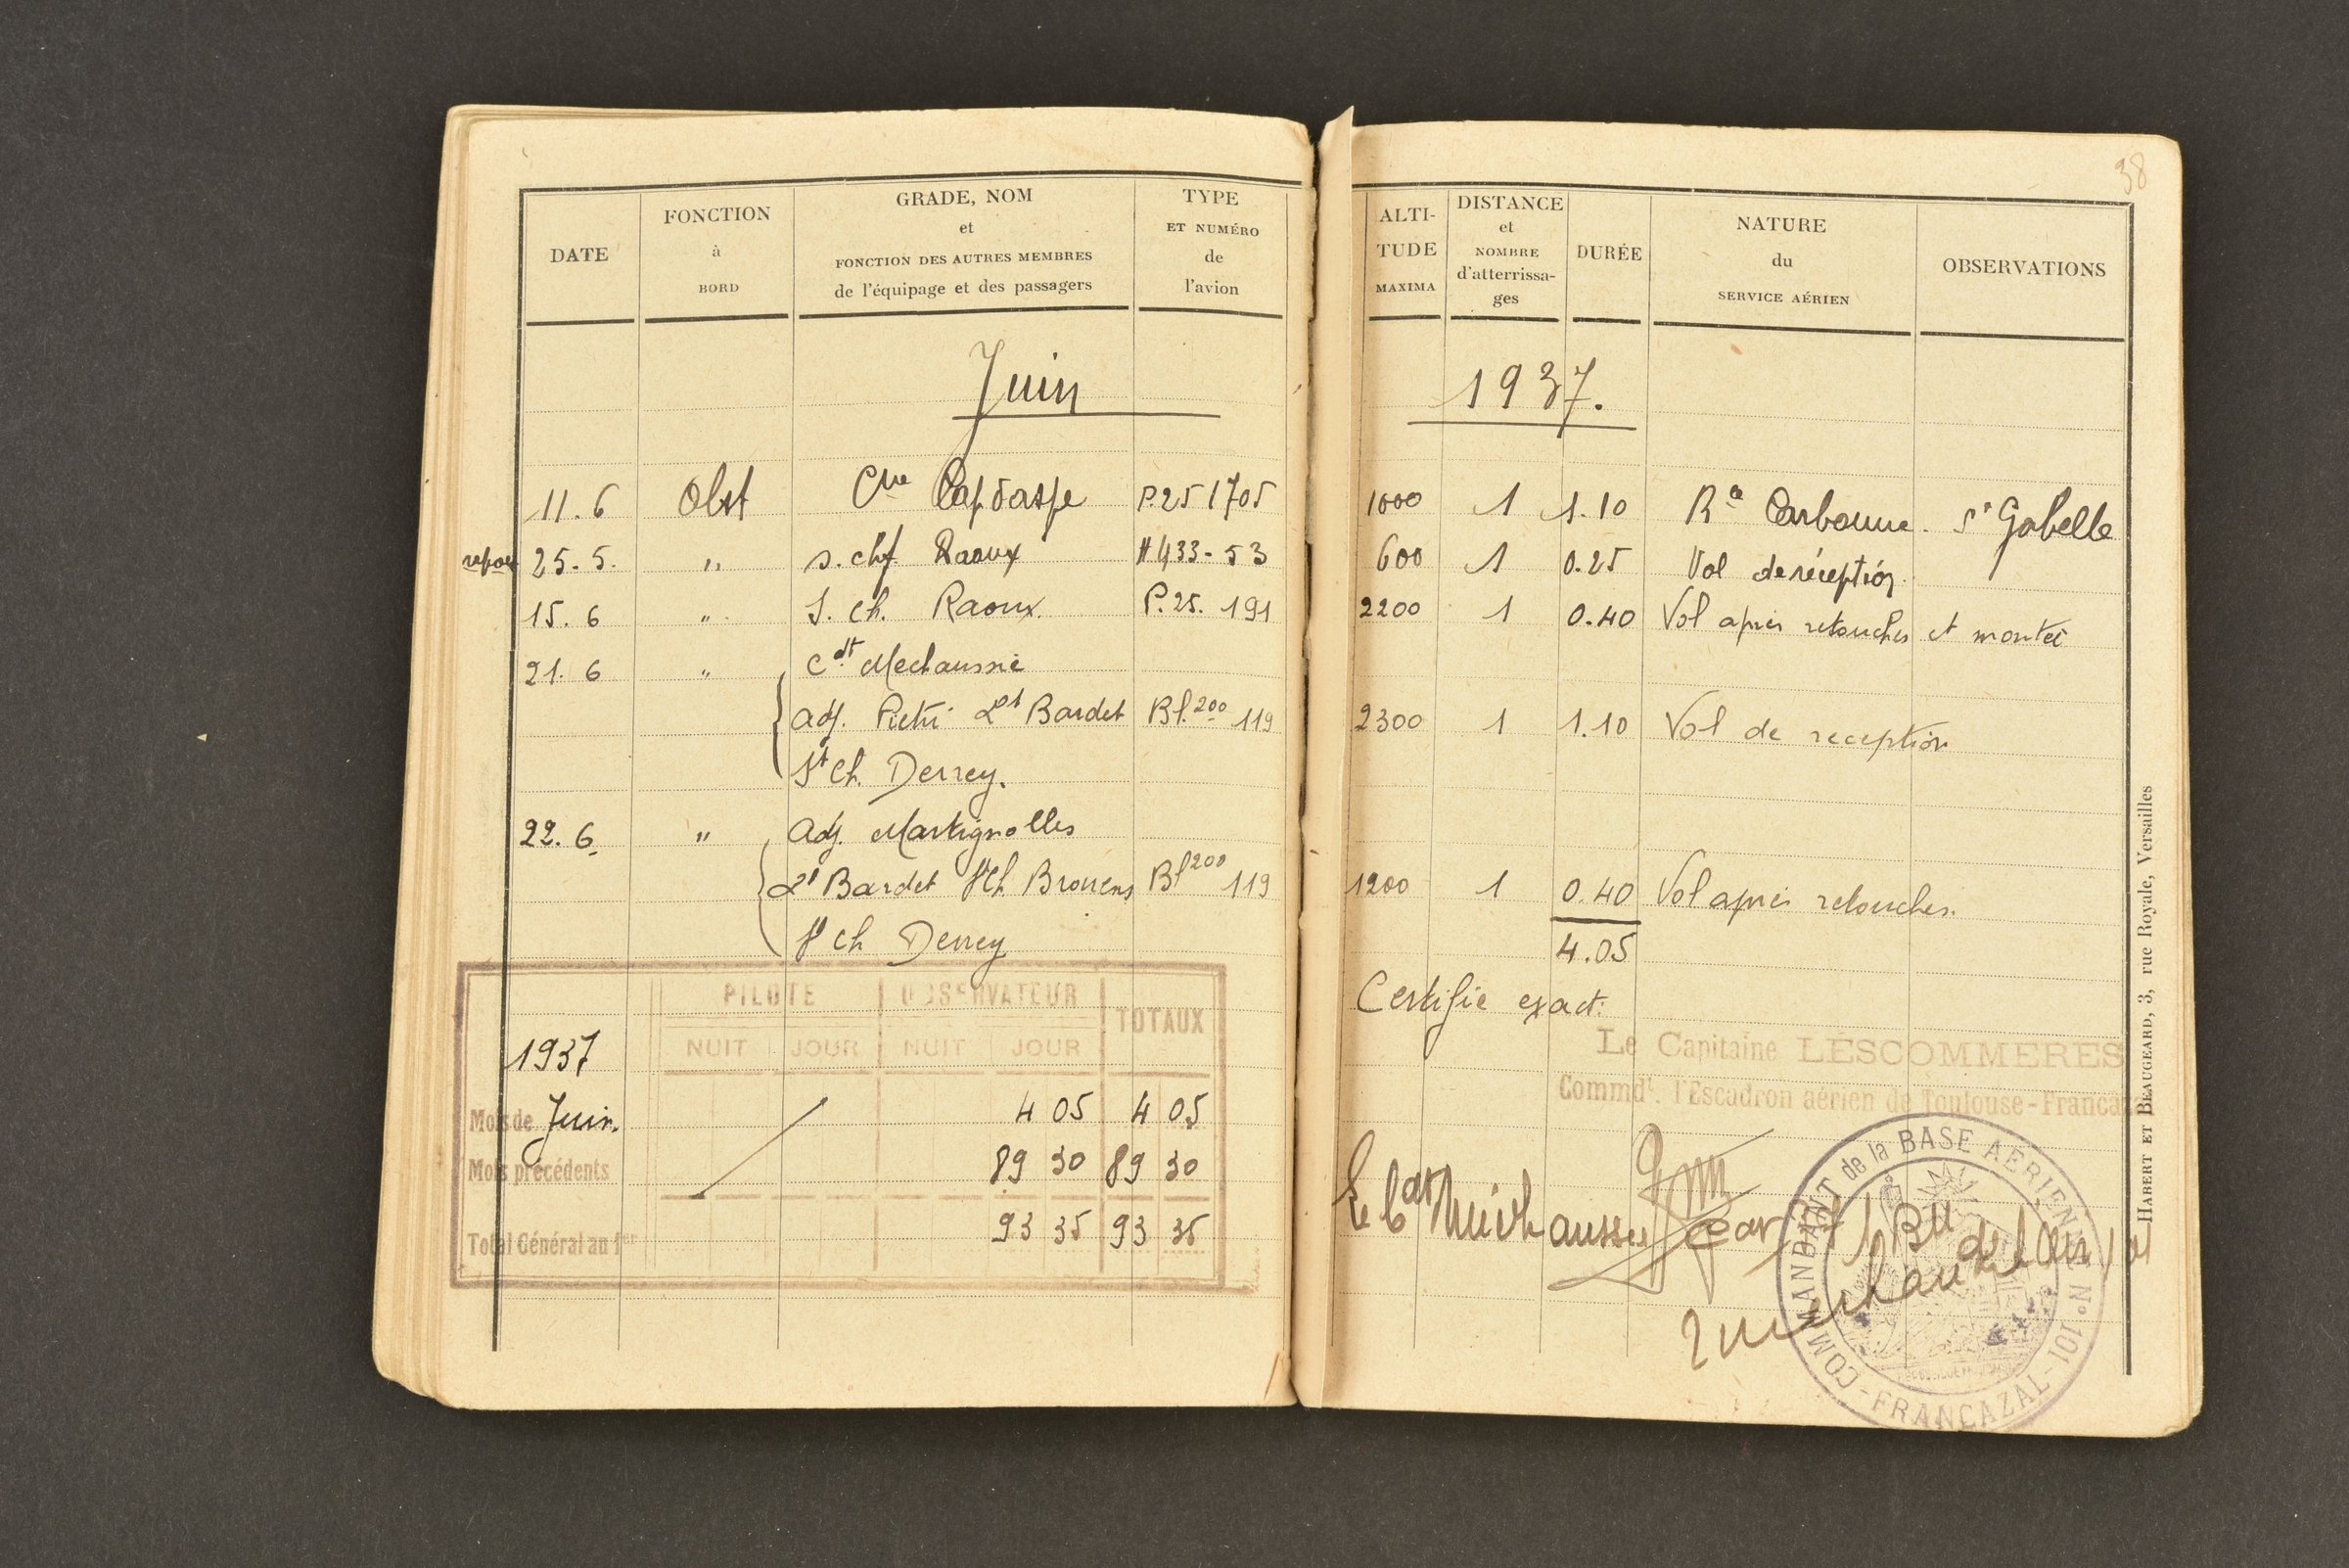 38
DATE
FONCTION
à
BORD
GRADE, NOM
et
FONCTION DES AUTRES MEMBRES
de l'équipage et des passagers
TYPE
ET NUMÉRO
de
l'avion
ALTI-
TUDE
MAXIMA
DISTANCE
et
NOMBRE
d'atterrissa-
ges
DURÉE
NATURE
du
SERVICE AÉRIEN
OBSERVATIONS
Juin 1937.
11.6 Obst Cne P.25 1705 1000 1 1.10 Ra Carbonne. St Gabelle
report 25.5. " s. chf. Raoux H 433-53 600 1 0.25 Vol de réception.
15.6 " S. ch. Raoux. P.25. 191 2200 1 0.40 Vol après retouches et montée
21.6 " Cdt Mechaussie
adj. Pietri Lt Bardet Bl.200 119 2300 1 1.10 Vol de reception
St Ch. Derrey.
22.6. " adj. Martignolles
Lt Bardet St Ch. Brouens Bl 200 119 1200 1 0.40 Vol après retouches.
St Ch Derrey
4.05
Certifie exact:
Le Capitaine LESCOMMERES
Commdt. l'Escadron aérien de Toulouse-Francazal
PILOTE OBSERVATEUR TOTAUX
NUIT JOUR NUIT JOUR
1937
Mois de Juin. 4 05 4 05
Mois précédents 89 30 89 30
Total Général au 1er 93 35 93 35
Le
COMMANDANT de la BASE AÉRIENNE N° 101 - FRANCAZAL -
HABERT ET BEAUGEARD, 3, rue Royale, Versailles